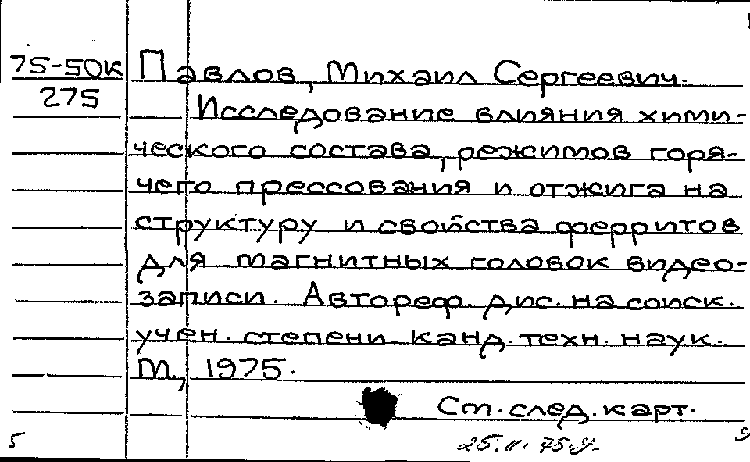 75-50К
275
Павлов, Михаил Сергеевич.
Исследование влияния хими-
ческого состава, режимов горя-
чего прессования и отжига на
структуру и свойства ферритов
для магнитных головок видео-
записи. Автореф. дис. на соиск.
учен. степени канд. техн. наук.
М., 1975.
Ст. след. карт.
5